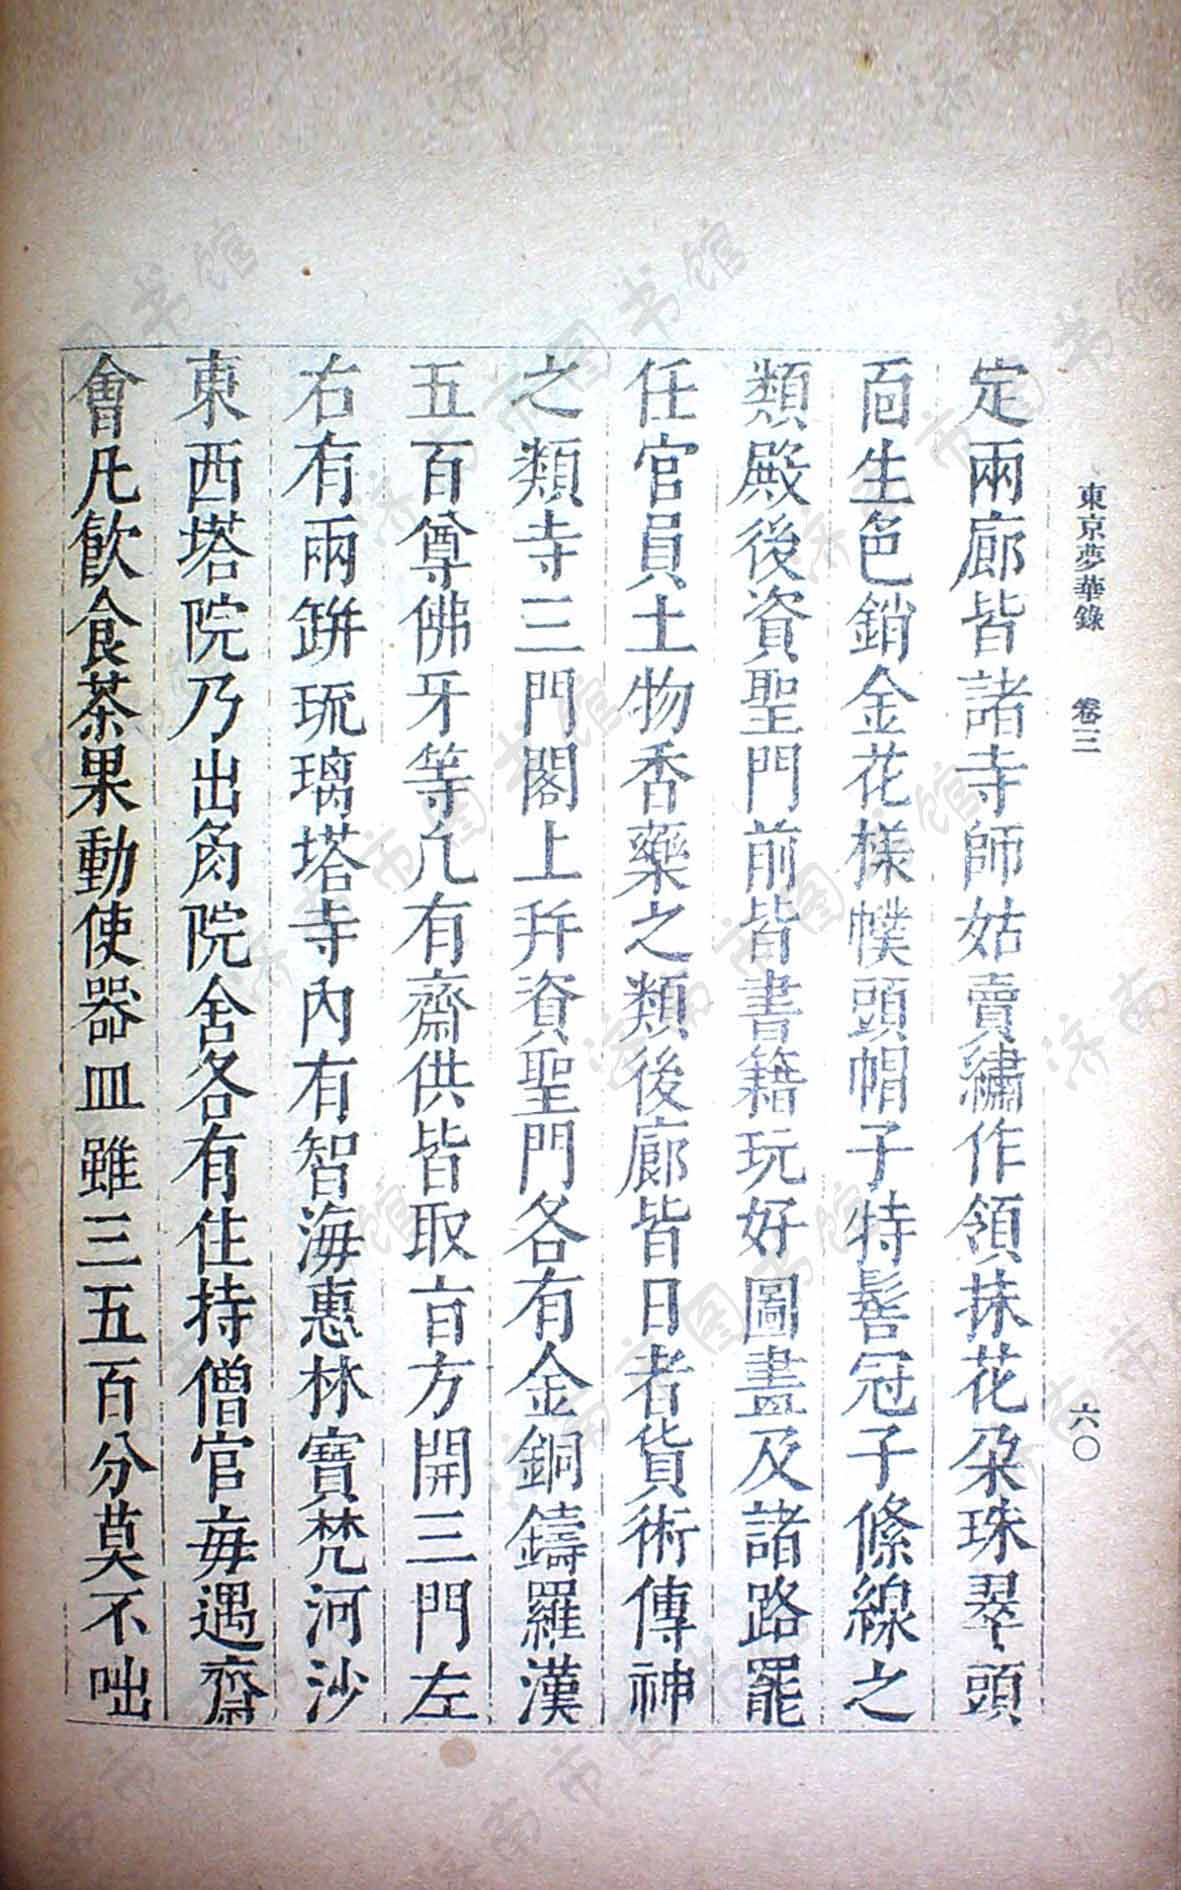 東京夢華錄 卷三 六〇
定兩廊皆諸寺師姑賣繡作領抹花朶珠翠頭
靣生色銷金花樣幞頭帽子特髻冠子絛線之
類殿後資聖門前皆書籍玩好圖畫及諸路罷
任官員土物香藥之類後廊皆日者貨術傳神
之類寺三門閣上并資聖門各有金銅鑄羅漢
五百尊佛牙等凡有齋供皆取旨方開三門左
右有兩缾琉璃塔寺內有智海惠林寶梵河沙
東西塔院乃出角院舍各有住持僧官每遇齋
會凡飲食茶果動使器皿雖三五百分莫不咄
济南市图书馆